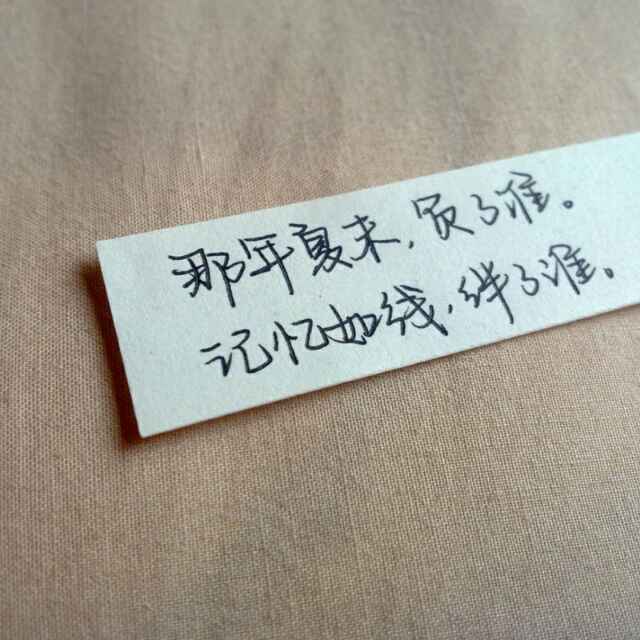 那年夏末,负了谁。
记忆如线,绊了谁。